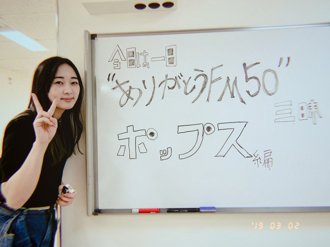 今日は一日
"ありがとうFM50"
三昧
ポップス編
'19 03 02